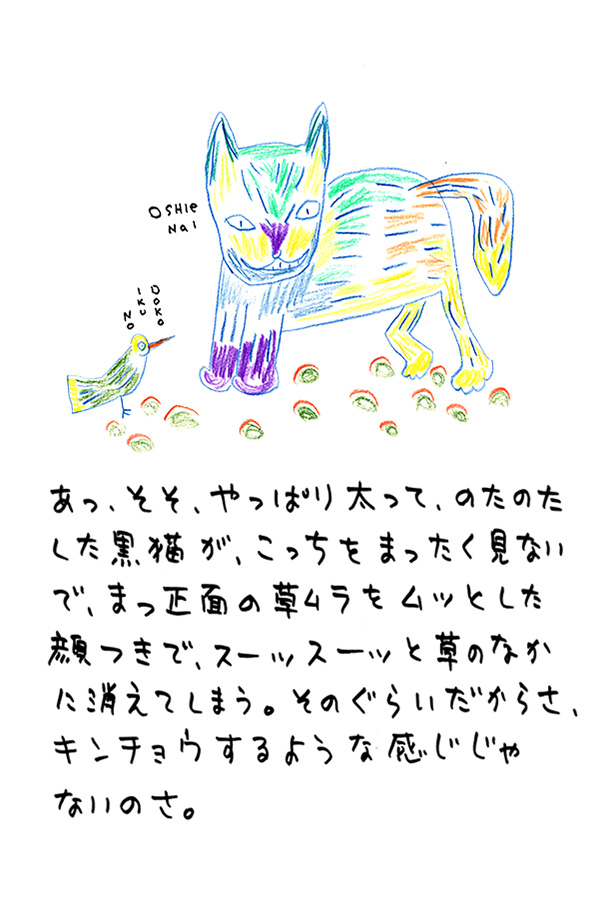 OSHIE
NAI
DOKO
IKU
NO
あっ、そそ、やっぱり太って、のたのた
した黒猫が、こっちをまったく見ない
で、まっ正面の草ムラをムッとした
顔つきで、スーッスーッと草のなか
に消えてしまう。そのぐらいだからさ、
キンチョウするような感じじゃ
ないのさ。